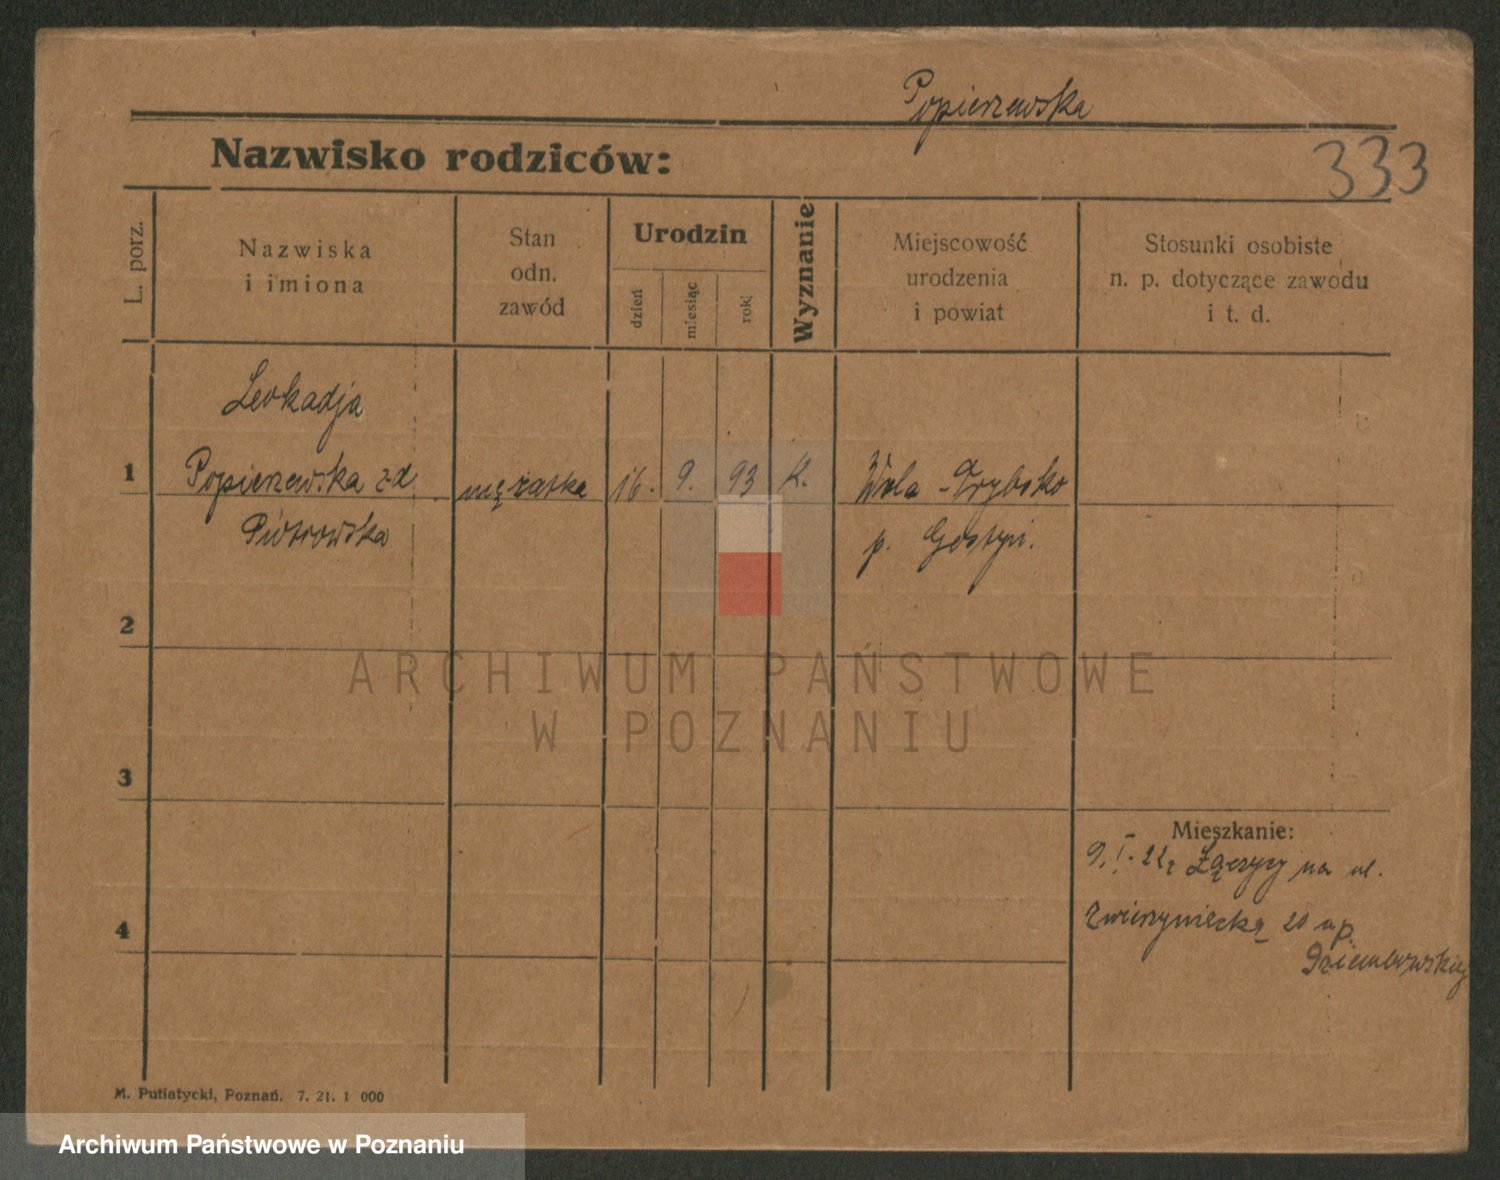 Popierzewska
333
Nazwisko rodziców:
L. porz.
Nazwiska
i imiona
Stan
odn.
zawód
Urodzin
dzień
miesiąc
rok
Wyznanie
Miejscowość
urodzenia
i powiat
Stosunki osobiste
n. p. dotyczące zawodu
i t. d.
Leokadja
1
Popierzewska z d
mężatka
16.
9.
93
K.
Wola -
Piotrowska
p. Gostyń.
2
ARCHIWUM PAŃSTWOWE
W POZNANIU
3
Mieszkanie:
9. I. 22 z na ul.
Zwierzyniecką 20 u p.
4
M. Putiatycki, Poznań. 7. 21. 1 000
Archiwum Państwowe w Poznaniu